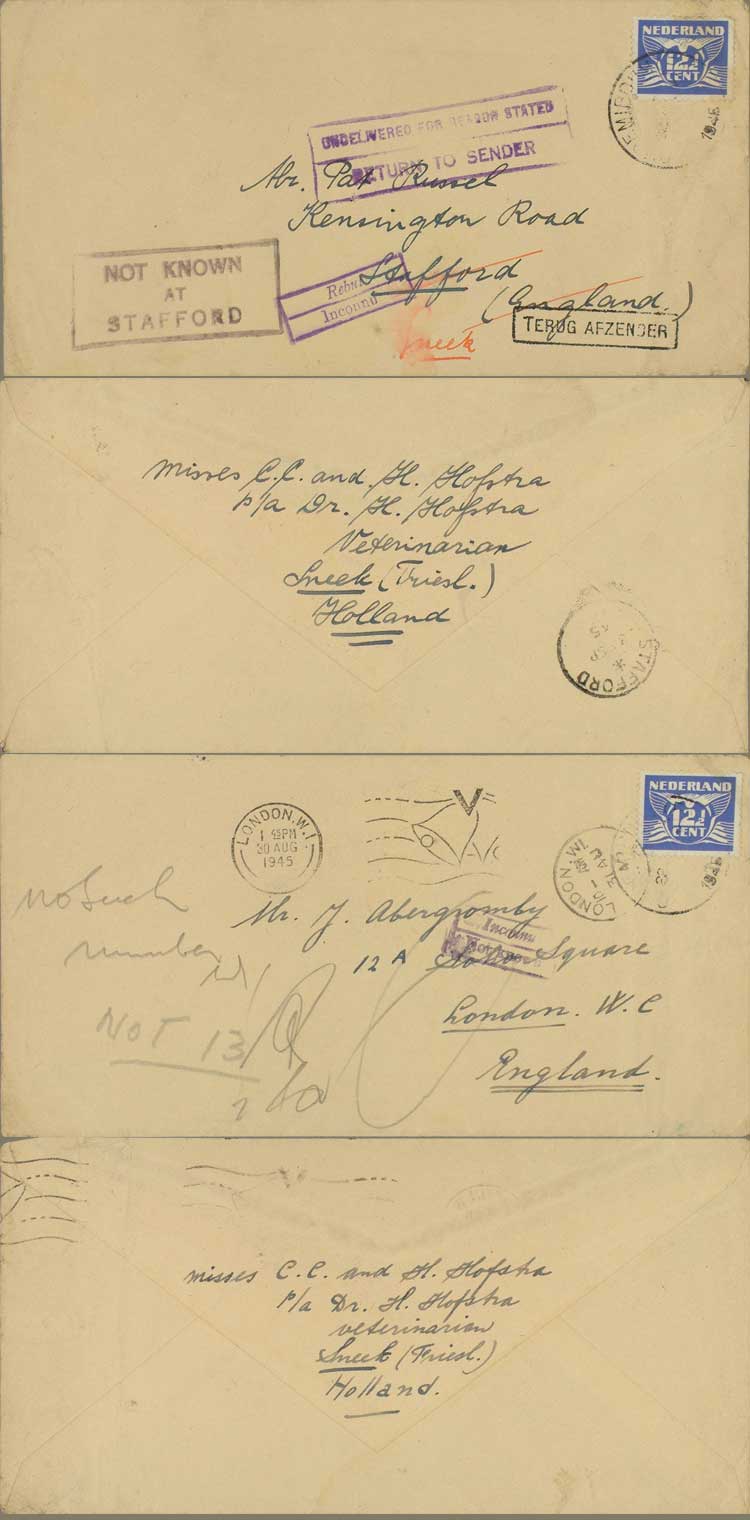 NEDERLAND
12½
CENT
1945
UNDELIVERED FOR REASON STATED
RETURN TO SENDER
Mr. Pat Russel
Kensington Road
Stafford
(England.)
NOT KNOWN
AT
STAFFORD
Rebut
Inconnu
TERUG AFZENDER
Sneek
Misses C.C. and H. Hofstra
p/a Dr. H. Hofstra
Veterinarian
Sneek (Friesl.)
Holland
STAFFORD
SP
45
NEDERLAND
12½
CENT
1945
LONDON. W.1
1 45 PM
30 AUG
1945
LONDON. W1
31 AU
45
No such
number
Mr. J. Abergromby
Inconnu
Not known
12A Soho Square
London. W.C
England.
NOT 13
Misses C.C. and H. Hofstra
p/a Dr. H. Hofstra
veterinarian
Sneek (Friesl.)
Holland.